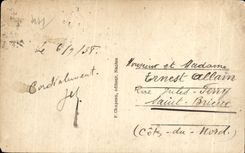 Le 6/9/38.
Cordialement.
F. Chapeau, éditeur, Nantes
Monsieur et Madame
Ernest Allain
Rue Jules-Ferry
Saint-Brieuc
(Côtes-du-Nord)